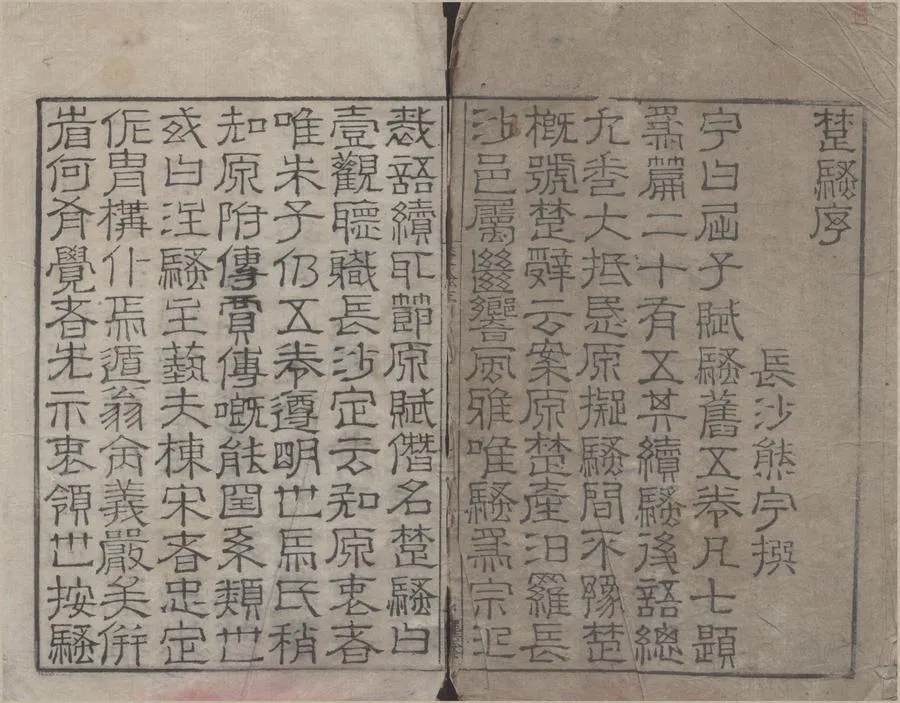 楚騷序
長沙熊宇撰
宇曰屈子賦騷舊五卷凡七題
累篇二十有五其續騷後語總
九卷大抵悲原擬騷間不豫楚
概號楚辭云案原楚產汨羅長
沙邑屬響風雅唯騷爲宗
裁語續節原賦僭名楚騷白
壹觀聽職長沙定云知原衷者
唯朱子仍五卷遵明世馬氏稍
知原附傳賈傳慨能罔系類世
或曰注騷至藝夫棟宋者忠定
侂冑構仆焉遯翁命義嚴矣併
省何有覺者先示衷領世按騷